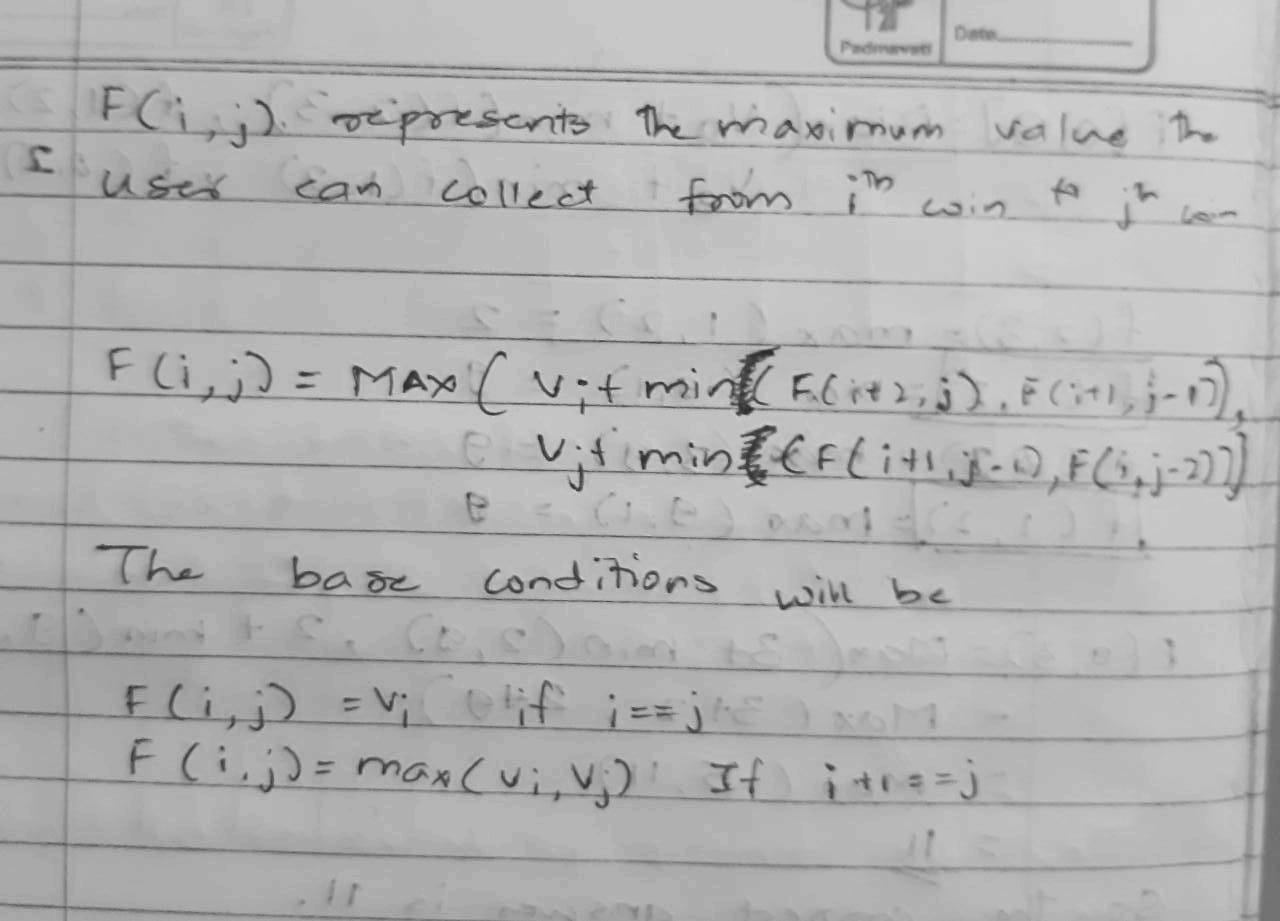 Padmavati Date
F(i,j). represents the maximum value the
user can collect from iᵗʰ coin to jᵗʰ coin
F(i,j) = MAX( Vi+ min( F(i+2,j), F(i+1,j-1)),
Vj+ min( F(i+1,j-1), F(i,j-2)))
The base conditions will be
F(i,j) = Vi if i==j
F(i,j) = max(Vi,Vj) If i+1==j